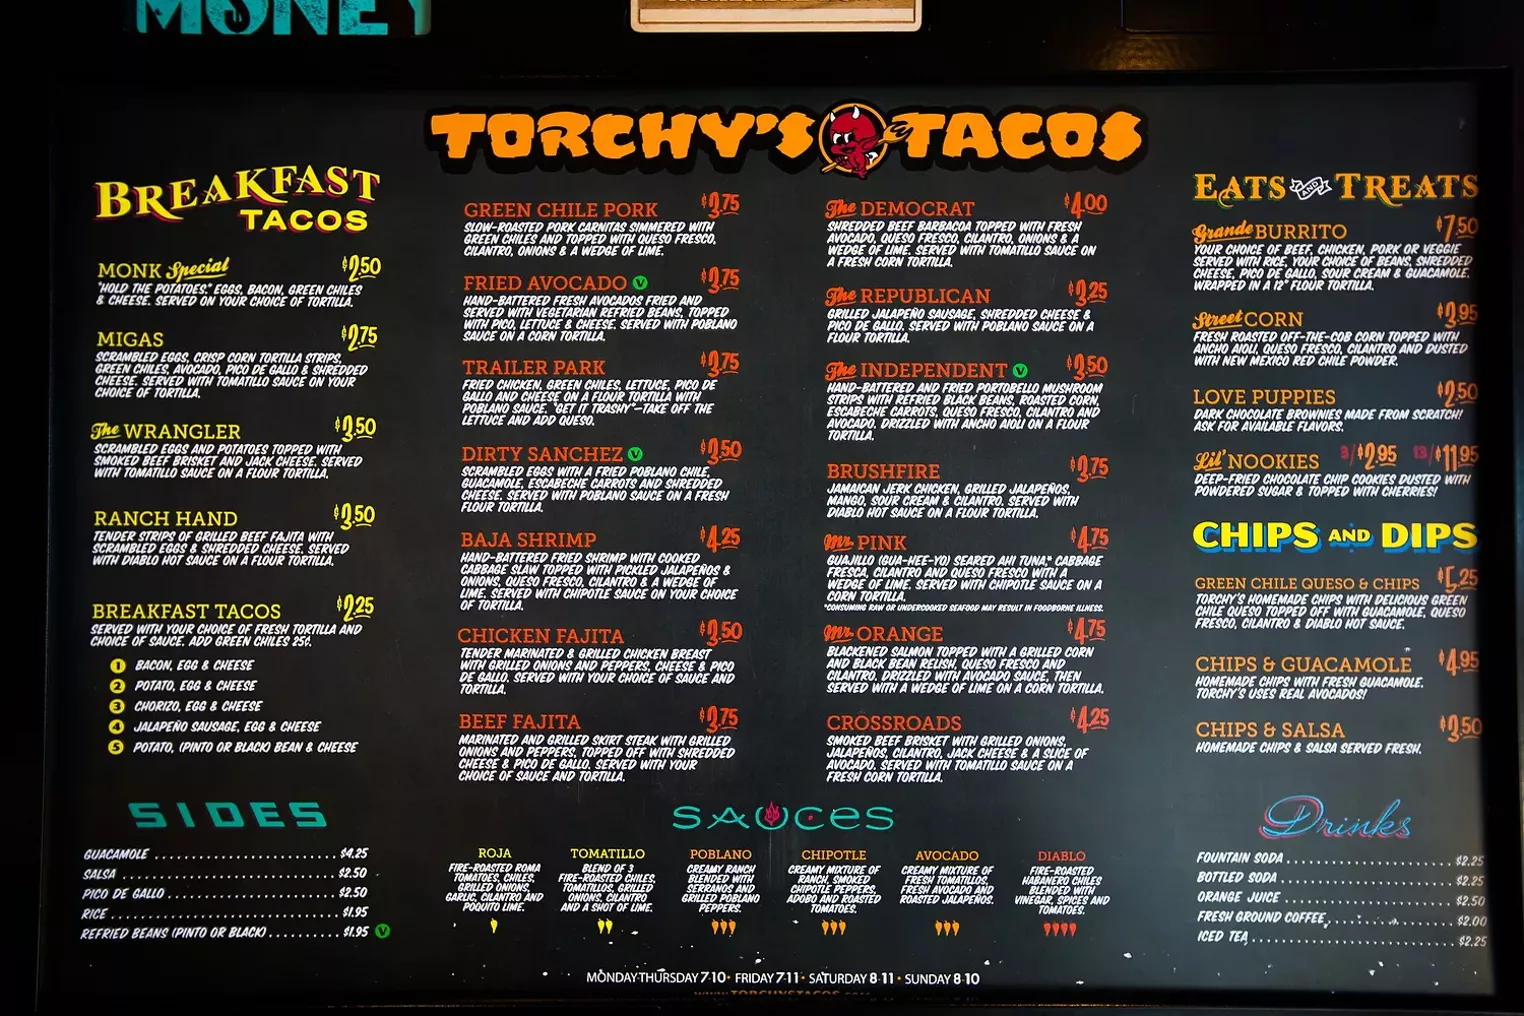 MONEY
TORCHY'S TACOS
BREAKFAST
TACOS
MONK Special $2.50
"HOLD THE POTATOES." EGGS, BACON, GREEN CHILES
& CHEESE. SERVED ON YOUR CHOICE OF TORTILLA.
MIGAS $2.75
SCRAMBLED EGGS, CRISP CORN TORTILLA STRIPS,
GREEN CHILES, AVOCADO, PICO DE GALLO & SHREDDED
CHEESE. SERVED WITH TOMATILLO SAUCE ON YOUR
CHOICE OF TORTILLA.
The WRANGLER $3.50
SCRAMBLED EGGS AND POTATOES TOPPED WITH
SMOKED BEEF BRISKET AND JACK CHEESE. SERVED
WITH TOMATILLO SAUCE ON A FLOUR TORTILLA.
RANCH HAND $3.50
TENDER STRIPS OF GRILLED BEEF FAJITA WITH
SCRAMBLED EGGS & SHREDDED CHEESE. SERVED
WITH DIABLO HOT SAUCE ON A FLOUR TORTILLA.
BREAKFAST TACOS $2.25
SERVED WITH YOUR CHOICE OF FRESH TORTILLA AND
CHOICE OF SAUCE. ADD GREEN CHILES 25¢.
1 BACON, EGG & CHEESE
2 POTATO, EGG & CHEESE
3 CHORIZO, EGG & CHEESE
4 JALAPEÑO SAUSAGE, EGG & CHEESE
5 POTATO, (PINTO OR BLACK) BEAN & CHEESE
GREEN CHILE PORK $3.75
SLOW-ROASTED PORK CARNITAS SIMMERED WITH
GREEN CHILES AND TOPPED WITH QUESO FRESCO,
CILANTRO, ONIONS & A WEDGE OF LIME.
FRIED AVOCADO V $3.75
HAND-BATTERED FRESH AVOCADOS FRIED AND
SERVED WITH VEGETARIAN REFRIED BEANS, TOPPED
WITH PICO, LETTUCE & CHEESE. SERVED WITH POBLANO
SAUCE ON A CORN TORTILLA.
TRAILER PARK $3.75
FRIED CHICKEN, GREEN CHILES, LETTUCE, PICO DE
GALLO AND CHEESE ON A FLOUR TORTILLA WITH
POBLANO SAUCE. "GET IT TRASHY"—TAKE OFF THE
LETTUCE AND ADD QUESO.
DIRTY SANCHEZ V $3.50
SCRAMBLED EGGS WITH A FRIED POBLANO CHILE,
GUACAMOLE, ESCABECHE CARROTS AND SHREDDED
CHEESE. SERVED WITH POBLANO SAUCE ON A FRESH
FLOUR TORTILLA.
BAJA SHRIMP $4.25
HAND-BATTERED FRIED SHRIMP WITH COOKED
CABBAGE SLAW TOPPED WITH PICKLED JALAPEÑOS &
ONIONS, QUESO FRESCO, CILANTRO & A WEDGE OF
LIME. SERVED WITH CHIPOTLE SAUCE ON YOUR CHOICE
OF TORTILLA.
CHICKEN FAJITA $3.50
TENDER MARINATED & GRILLED CHICKEN BREAST
WITH GRILLED ONIONS AND PEPPERS, CHEESE & PICO
DE GALLO. SERVED WITH YOUR CHOICE OF SAUCE AND
TORTILLA.
BEEF FAJITA $3.75
MARINATED AND GRILLED SKIRT STEAK WITH GRILLED
ONIONS AND PEPPERS, TOPPED OFF WITH SHREDDED
CHEESE & PICO DE GALLO. SERVED WITH YOUR
CHOICE OF SAUCE AND TORTILLA.
The DEMOCRAT $4.00
SHREDDED BEEF BARBACOA TOPPED WITH FRESH
AVOCADO, QUESO FRESCO, CILANTRO, ONIONS & A
WEDGE OF LIME. SERVED WITH TOMATILLO SAUCE ON
A FRESH CORN TORTILLA.
The REPUBLICAN $3.25
GRILLED JALAPEÑO SAUSAGE, SHREDDED CHEESE &
PICO DE GALLO. SERVED WITH POBLANO SAUCE ON A
FLOUR TORTILLA.
The INDEPENDENT V $3.50
HAND-BATTERED AND FRIED PORTOBELLO MUSHROOM
STRIPS WITH REFRIED BLACK BEANS, ROASTED CORN,
ESCABECHE CARROTS, QUESO FRESCO, CILANTRO AND
AVOCADO. DRIZZLED WITH ANCHO AIOLI ON A FLOUR
TORTILLA.
BRUSHFIRE $3.75
JAMAICAN JERK CHICKEN, GRILLED JALAPEÑOS,
MANGO, SOUR CREAM & CILANTRO. SERVED WITH
DIABLO HOT SAUCE ON A FLOUR TORTILLA.
Mr. PINK $4.75
GUAJILLO (GUA-HEE-YO) SEARED AHI TUNA,* CABBAGE
FRESCA, CILANTRO AND QUESO FRESCO WITH A
WEDGE OF LIME. SERVED WITH CHIPOTLE SAUCE ON A
CORN TORTILLA.
*CONSUMING RAW OR UNDERCOOKED SEAFOOD MAY RESULT IN FOODBORNE ILLNESS.
Mr. ORANGE $4.75
BLACKENED SALMON TOPPED WITH A GRILLED CORN
AND BLACK BEAN RELISH, QUESO FRESCO AND
CILANTRO. DRIZZLED WITH AVOCADO SAUCE, THEN
SERVED WITH A WEDGE OF LIME ON A CORN TORTILLA.
CROSSROADS $4.25
SMOKED BEEF BRISKET WITH GRILLED ONIONS,
JALAPEÑOS, CILANTRO, JACK CHEESE & A SLICE OF
AVOCADO. SERVED WITH TOMATILLO SAUCE ON A
FRESH CORN TORTILLA.
EATS AND TREATS
Grande BURRITO $7.50
YOUR CHOICE OF BEEF, CHICKEN, PORK OR VEGGIE
SERVED WITH RICE, YOUR CHOICE OF BEANS, SHREDDED
CHEESE, PICO DE GALLO, SOUR CREAM & GUACAMOLE.
WRAPPED IN A 12" FLOUR TORTILLA.
Street CORN $3.95
FRESH ROASTED OFF-THE-COB CORN TOPPED WITH
ANCHO AIOLI, QUESO FRESCO, CILANTRO AND DUSTED
WITH NEW MEXICO RED CHILE POWDER.
LOVE PUPPIES $2.50
DARK CHOCOLATE BROWNIES MADE FROM SCRATCH!
ASK FOR AVAILABLE FLAVORS.
Lil' NOOKIES 3/$2.95 13/$11.95
DEEP-FRIED CHOCOLATE CHIP COOKIES DUSTED WITH
POWDERED SUGAR & TOPPED WITH CHERRIES!
CHIPS AND DIPS
GREEN CHILE QUESO & CHIPS $5.25
TORCHY'S HOMEMADE CHIPS WITH DELICIOUS GREEN
CHILE QUESO TOPPED OFF WITH GUACAMOLE, QUESO
FRESCO, CILANTRO & DIABLO HOT SAUCE.
CHIPS & GUACAMOLE $4.95
HOMEMADE CHIPS WITH FRESH GUACAMOLE.
TORCHY'S USES REAL AVOCADOS!
CHIPS & SALSA $3.50
HOMEMADE CHIPS & SALSA SERVED FRESH.
SIDES
GUACAMOLE $4.25
SALSA $2.50
PICO DE GALLO $2.50
RICE $1.95
REFRIED BEANS (PINTO OR BLACK) $1.95 V
SAUCES
ROJA
FIRE-ROASTED ROMA
TOMATOES, CHILES,
GRILLED ONIONS,
GARLIC, CILANTRO AND
POQUITO LIME.
TOMATILLO
BLEND OF 3
FIRE-ROASTED CHILES,
TOMATILLOS, GRILLED
ONIONS, CILANTRO
AND A SHOT OF LIME.
POBLANO
CREAMY RANCH
BLENDED WITH
SERRANOS AND
GRILLED POBLANO
PEPPERS.
CHIPOTLE
CREAMY MIXTURE OF
RANCH, SMOKED
CHIPOTLE PEPPERS,
ADOBO AND ROASTED
TOMATOES.
AVOCADO
CREAMY MIXTURE OF
FRESH TOMATILLOS,
FRESH AVOCADO AND
ROASTED JALAPEÑOS.
DIABLO
FIRE-ROASTED
HABANERO CHILES
BLENDED WITH
VINEGAR, SPICES AND
TOMATOES.
Drinks
FOUNTAIN SODA $2.25
BOTTLED SODA $2.25
ORANGE JUICE $2.50
FRESH GROUND COFFEE $2.00
ICED TEA $2.25
MONDAY-THURSDAY 7-10 • FRIDAY 7-11 • SATURDAY 8-11 • SUNDAY 8-10
WWW.TORCHYSTACOS.COM